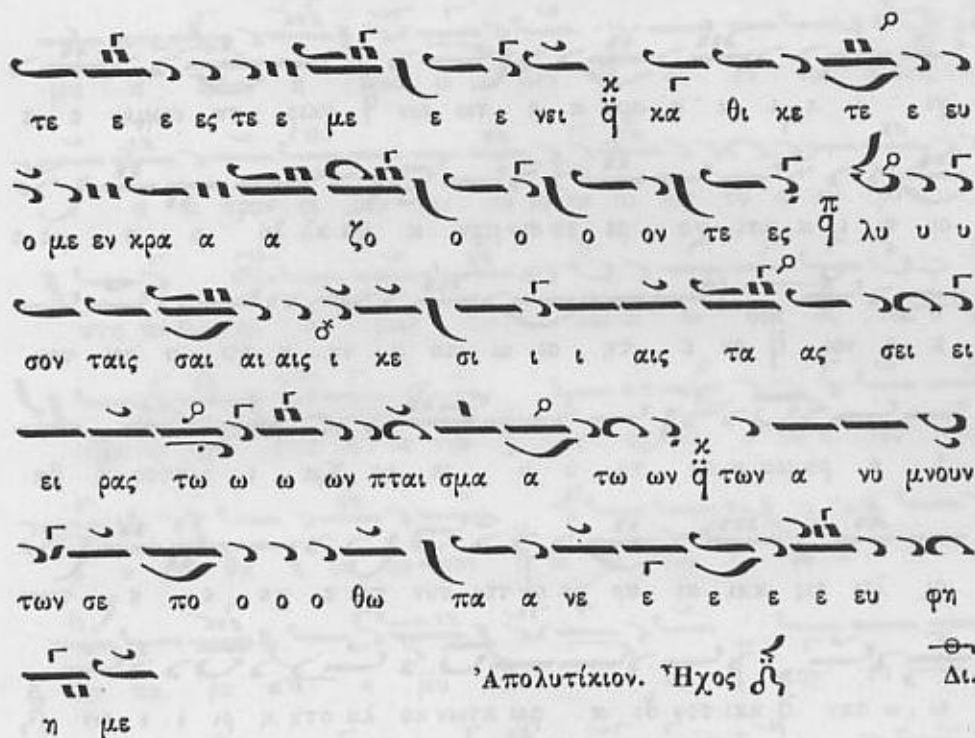 τε ε ε ες τε ε με ε ε νει κα θι κε τε ε ευ
ο με εν κρα α α ζο ο ο ο ον τε ες λυ υ υ
σον ταις σαι αι αις ι κε σι ι ι αις τα ας σει ει
ει ρας τω ω ω ων πται σμα α τω ων των α νυ μνουν
των σε πο ο ο ο θω πα α νε ε ε ε ε ευ φη
η με
Ἀπολυτίκιον. Ἦχος Δι.